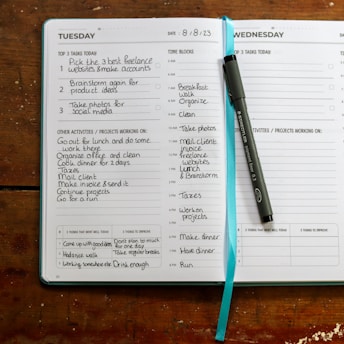 TUESDAY
DATE: 8/8/23
WEDNESDAY
TOP 3 TASKS TODAY
1 Pick the 3 best freelance
websites & make accounts
2 Brainstorm again for
product ideas
3 Take photos for
social media
OTHER ACTIVITIES / PROJECTS WORKING ON:
Go out for lunch and do some
work there
Organize office and clean
Cook dinner for 2 days
Taxes
Mail client
Make invoice & send it
Continue projects
Go for a run
TIME BLOCKS
Breakfast
walk
Organize
Clean
Take photos
mail client
invoice
freelance
websites
Lunch
& Brainstorm
Taxes
Work on
projects
Make dinner
Have dinner
Run
# 3 THINGS THAT WENT WELL TODAY
3 THINGS TO IMPROVE
1 Came up with good ideas
Don't plan to much
for one day
2 Had a nice walk
Take regular breaks
3 Working somewhere else
Drink enough
TOP 3 TASKS TODAY
1
2
3
OTHER ACTIVITIES / PROJECTS WORKING ON: